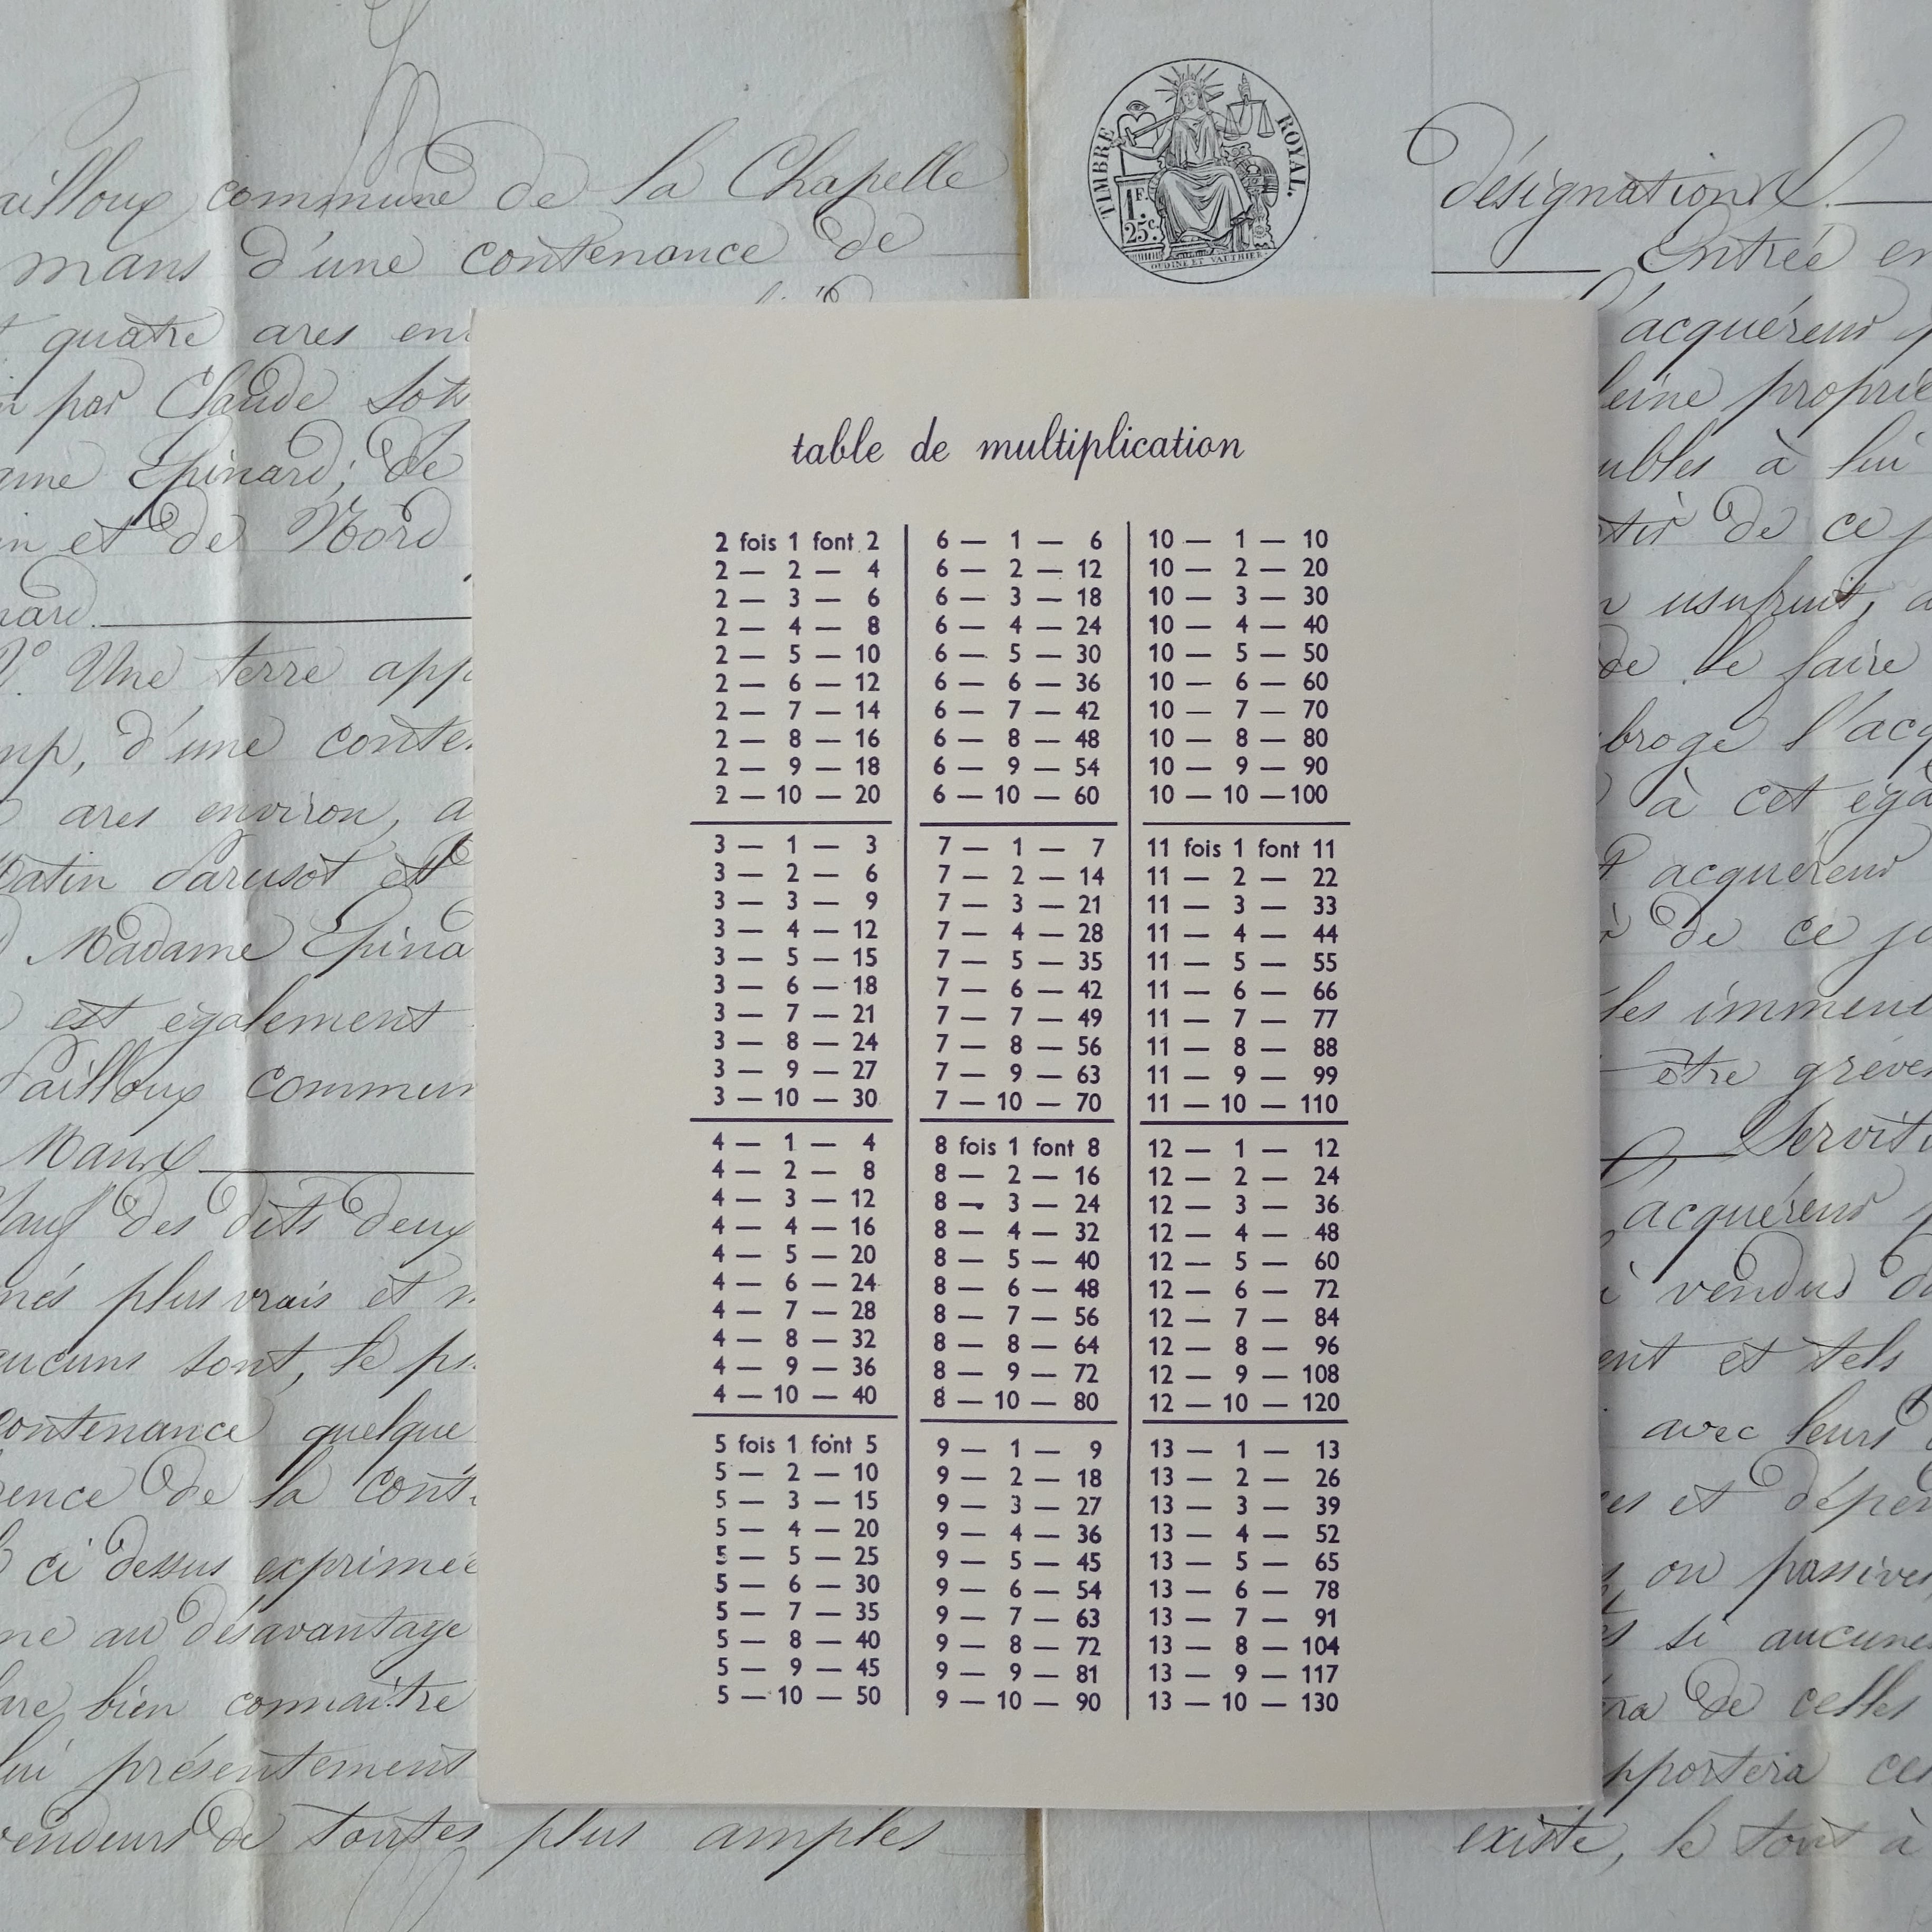 ailloux commune de la Chapelle
mans d'une contenance de
quatre ares
par Claude
Epinard; de
et de Nord
Une terre
d'une
ares environ, a
et
Madame
est également
Mans
des dits deux
plus vrais et
sont, le
contenance quelque
de la
ci dessus
au désavantage
bien connaitre
lui présentement
vendeurs de toutes plus amples
TIMBRE ROYAL.
1F.
25c.
OUDINE ET VAUTHIER
désignations.
Entrée en
acquéreur
à lui
de ce
usufruit,
de le faire
à cet
acquéreur
de ce
les
être
acquéreur
vendus
et tels
avec leurs
et
ou passives
si aucunes
de celles
apportera
existe, le tout à
table de multiplication
2 fois 1 font 2
2 — 2 — 4
2 — 3 — 6
2 — 4 — 8
2 — 5 — 10
2 — 6 — 12
2 — 7 — 14
2 — 8 — 16
2 — 9 — 18
2 — 10 — 20
3 — 1 — 3
3 — 2 — 6
3 — 3 — 9
3 — 4 — 12
3 — 5 — 15
3 — 6 — 18
3 — 7 — 21
3 — 8 — 24
3 — 9 — 27
3 — 10 — 30
4 — 1 — 4
4 — 2 — 8
4 — 3 — 12
4 — 4 — 16
4 — 5 — 20
4 — 6 — 24
4 — 7 — 28
4 — 8 — 32
4 — 9 — 36
4 — 10 — 40
5 fois 1 font 5
5 — 2 — 10
5 — 3 — 15
5 — 4 — 20
5 — 5 — 25
5 — 6 — 30
5 — 7 — 35
5 — 8 — 40
5 — 9 — 45
5 — 10 — 50
6 — 1 — 6
6 — 2 — 12
6 — 3 — 18
6 — 4 — 24
6 — 5 — 30
6 — 6 — 36
6 — 7 — 42
6 — 8 — 48
6 — 9 — 54
6 — 10 — 60
7 — 1 — 7
7 — 2 — 14
7 — 3 — 21
7 — 4 — 28
7 — 5 — 35
7 — 6 — 42
7 — 7 — 49
7 — 8 — 56
7 — 9 — 63
7 — 10 — 70
8 fois 1 font 8
8 — 2 — 16
8 — 3 — 24
8 — 4 — 32
8 — 5 — 40
8 — 6 — 48
8 — 7 — 56
8 — 8 — 64
8 — 9 — 72
8 — 10 — 80
9 — 1 — 9
9 — 2 — 18
9 — 3 — 27
9 — 4 — 36
9 — 5 — 45
9 — 6 — 54
9 — 7 — 63
9 — 8 — 72
9 — 9 — 81
9 — 10 — 90
10 — 1 — 10
10 — 2 — 20
10 — 3 — 30
10 — 4 — 40
10 — 5 — 50
10 — 6 — 60
10 — 7 — 70
10 — 8 — 80
10 — 9 — 90
10 — 10 — 100
11 fois 1 font 11
11 — 2 — 22
11 — 3 — 33
11 — 4 — 44
11 — 5 — 55
11 — 6 — 66
11 — 7 — 77
11 — 8 — 88
11 — 9 — 99
11 — 10 — 110
12 — 1 — 12
12 — 2 — 24
12 — 3 — 36
12 — 4 — 48
12 — 5 — 60
12 — 6 — 72
12 — 7 — 84
12 — 8 — 96
12 — 9 — 108
12 — 10 — 120
13 — 1 — 13
13 — 2 — 26
13 — 3 — 39
13 — 4 — 52
13 — 5 — 65
13 — 6 — 78
13 — 7 — 91
13 — 8 — 104
13 — 9 — 117
13 — 10 — 130